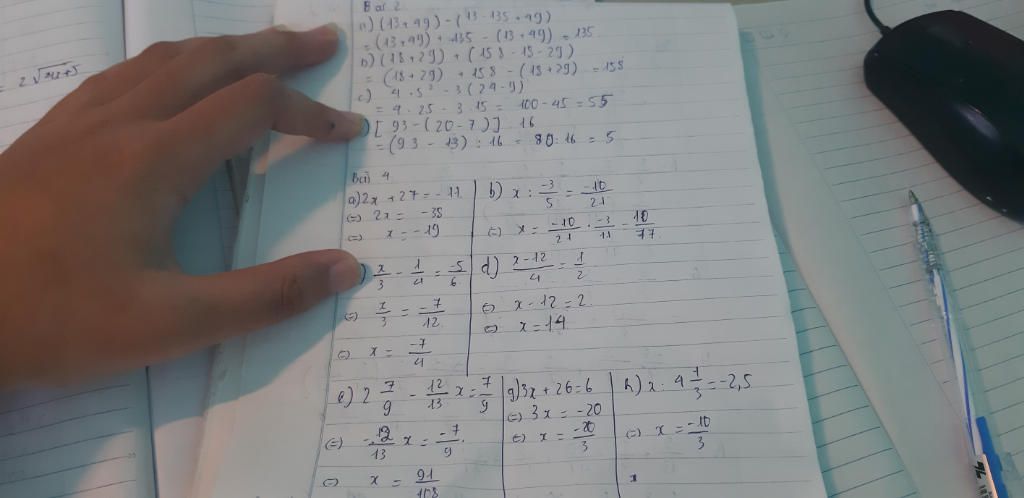 = 2√3x+5
Bài 2
a) (13+49) - (13-135+49)
= (13+49) + 135 - (13+49) = 135
b) (18+29) + (158-18-29)
= (18+29) + 158 - (18+29) = 158
c) 4·5² - 3(24-9)
= 4·25 - 3·15 = 100-45 = 55
) [93-(20-7)] 16
= (93-13) : 16 = 80:16 = 5
Bài 4
a) 2x + 27 = -11
(=) 2x = -38
(=) x = -19
b) x : -3/5 = -10/21
(=) x = -10/21 : -3/11 = 10/77
) x/3 - 1/4 = -5/6
(=) x/3 = -7/12
(=) x = -7/4
d) x-12/4 = 1/2
(=) x-12 = 2
(=) x = 14
e) 2 7/9 - 12/13 x = 7/9
(=) -12/13 x = -7/9
(=) x = 91/108
g) 3x + 26 = 6
(=) 3x = -20
(=) x = -20/3
h) x : 4 1/3 = -2,5
(=) x = -10/3